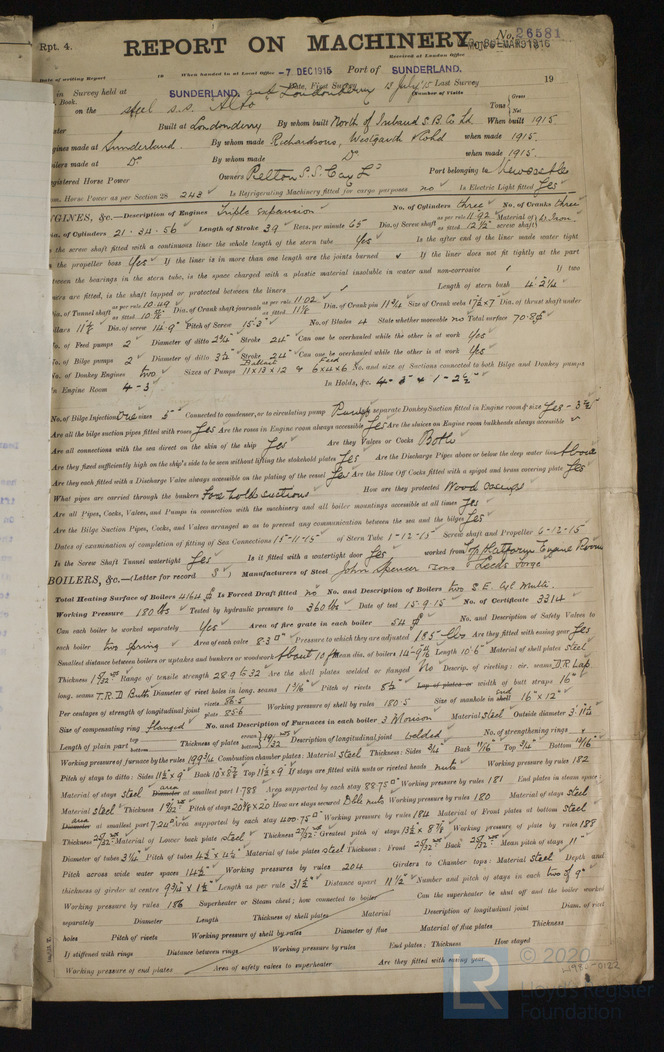 Rpt. 4.
REPORT ON MACHINERY.
No. 26581
Received at London Office
Date of writing Report 19 When handed in at Local Office -7 DEC 1915 Port of SUNDERLAND.
in Survey held at SUNDERLAND, Londonderry Date, First Survey 13 July '15 Last Survey 19
Book. (Number of Visits
on the steel s.s. Alto Tons Gross Net
Built at Londonderry By whom built North of Ireland S.B. Co Ld When built 1915
gines made at Sunderland By whom made Richardsons, Westgarth & Co Ld when made 1915.
ilers made at Do By whom made Do when made 1915.
gistered Horse Power Owners Pelton S.S. Coy Ld Port belonging to Newcastle
om. Horse Power as per Section 28 243 Is Refrigerating Machinery fitted for cargo purposes no Is Electric Light fitted Yes
GINES, &c.—Description of Engines Triple expansion No. of Cylinders three No. of Cranks three
ia. of Cylinders 21-34-56 Length of Stroke 39 Revs. per minute 65 Dia. of Screw shaft as per rule 11.92 as fitted 12½" Material of screw shaft Iron
the screw shaft fitted with a continuous liner the whole length of the stern tube Yes Is the after end of the liner made water tight
the propeller boss Yes If the liner is in more than one length are the joints burned If the liner does not fit tightly at the part
tween the bearings in the stern tube, is the space charged with a plastic material insoluble in water and non-corrosive If two
ners are fitted, is the shaft lapped or protected between the liners Length of stern bush 4'-2¼"
Dia. of Tunnel shaft as per rule 10.49 as fitted Dia. of Crank shaft journals as per rule 11.02 as fitted 11⅛ Dia. of Crank pin 11¾ Size of Crank webs 17½ x 7 Dia. of thrust shaft under
ollars 11⅛ Dia. of screw 14-9" Pitch of Screw 15-3" No. of Blades 4 State whether moveable no Total surface 70.8
No. of Feed pumps 2 Diameter of ditto 2¾ Stroke 24" Can one be overhauled while the other is at work Yes
No. of Bilge pumps 2 Diameter of ditto 3½ Stroke 24" Can one be overhauled while the other is at work Yes
No. of Donkey Engines two Sizes of Pumps Ballast 11x13x12 & Feed 6x4x6 No. and size of Suctions connected to both Bilge and Donkey pumps
In Engine Room 4-3 In Holds, &c. 4-3" & 1-2½"
No. of Bilge Injections One sizes 5" Connected to condenser, or to circulating pump Pump Is a separate Donkey Suction fitted in Engine room & size Yes - 3½"
Are all the bilge suction pipes fitted with roses Yes Are the roses in Engine room always accessible Yes Are the sluices on Engine room bulkheads always accessible
Are all connections with the sea direct on the skin of the ship Yes Are they Valves or Cocks Both
Are they fixed sufficiently high on the ship's side to be seen without lifting the stokehold plates Yes Are the Discharge Pipes above or below the deep water line Above
Are they each fitted with a Discharge Valve always accessible on the plating of the vessel Yes Are the Blow Off Cocks fitted with a spigot and brass covering plate Yes
What pipes are carried through the bunkers Fore hold suctions How are they protected Wood casings
Are all Pipes, Cocks, Valves, and Pumps in connection with the machinery and all boiler mountings accessible at all times Yes
Are the Bilge Suction Pipes, Cocks, and Valves arranged so as to prevent any communication between the sea and the bilges Yes
Dates of examination of completion of fitting of Sea Connections 15-11-15 of Stern Tube 1-12-15 Screw shaft and Propeller 6-12-15
Is the Screw Shaft Tunnel watertight Yes Is it fitted with a watertight door Yes worked from Top Platform Engine Room
BOILERS, &c.—(Letter for record S) Manufacturers of Steel John Spencer Sons & Leeds Forge
Total Heating Surface of Boilers 4164 Is Forced Draft fitted no No. and Description of Boilers two S.E. Cyl Multi.
Working Pressure 180 lbs Tested by hydraulic pressure to 360 lbs Date of test 15-9-15 No. of Certificate 3314
Can each boiler be worked separately Yes Area of fire grate in each boiler 54 No. and Description of Safety Valves to
each boiler two Spring Area of each valve 8.3 Pressure to which they are adjusted 185 lbs Are they fitted with easing gear Yes
Smallest distance between boilers or uptakes and bunkers or woodwork About 10 ft Mean dia. of boilers 14-9 Length 10'-6" Material of shell plates steel
Thickness Range of tensile strength 28.9 to 32 Are the shell plates welded or flanged No Descrip. of riveting: cir. seams D.R. Lap
long. seams T.R.D. Butts Diameter of rivet holes in long. seams 1 3/16" Pitch of rivets 8½" Lap of plates or width of butt straps 16"
Per centages of strength of longitudinal joint rivets 86.5 plate 85.6 Working pressure of shell by rules 180.5 Size of manhole in shell end 16" x 12"
Size of compensating ring flanged No. and Description of Furnaces in each boiler 3 Morison Material steel Outside diameter 3'-11¼"
Length of plain part top bottom Thickness of plates crown bottom 19/32 Description of longitudinal joint welded No. of strengthening rings
Working pressure of furnace by the rules 199¾ Combustion chamber plates: Material steel Thickness: Sides ¾" Back 11/16" Top ¾" Bottom 13/16"
Pitch of stays to ditto: Sides 11½ x 9" Back 10" x 8¾ Top 11½ x 9" If stays are fitted with nuts or riveted heads nuts Working pressure by rules 182
Material of stays steel area Diameter at smallest part 1.788 Area supported by each stay 88.75 Working pressure by rules 181 End plates in steam space
Material steel Thickness 1 Pitch of stays 20⅜ x 20 How are stays secured Dble nuts Working pressure by rules 180 Material of stays steel
area Diameter at smallest part 7.24 Area supported by each stay 400.75 Working pressure by rules 184 Material of Front plates at bottom steel
Thickness Material of Lower back plate steel Thickness 27/32 Greatest pitch of stays 13½ x 8⅞ Working pressure of plate by rules 188
Diameter of tubes 3¼" Pitch of tubes 4½ x 4½" Material of tube plates steel Thickness: Front Back Mean pitch of stays 11"
Pitch across wide water spaces 14½" Working pressures by rules 204 Girders to Chamber tops: Material steel Depth and
thickness of girder at centre 9¾ x 1½" Length as per rule 31½" Distance apart 11½" Number and pitch of stays in each two of 9"
Working pressure by rules 186 Superheater or Steam chest; how connected to boiler Can the superheater be shut off and the boiler worked
separately Diameter Length Thickness of shell plates Material Description of longitudinal joint Diam. of rivet
holes Pitch of rivets Working pressure of shell by rules Diameter of flue Material of flue plates Thickness
If stiffened with rings Distance between rings Working pressure by rules End plates: Thickness How stayed
Working pressure of end plates Area of safety valves to superheater Are they fitted with easing gear
LR
© 2020
Lloyd's Register
Foundation